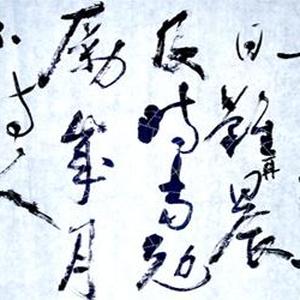 日難再晨
及時當勉
勵歲月
不待人